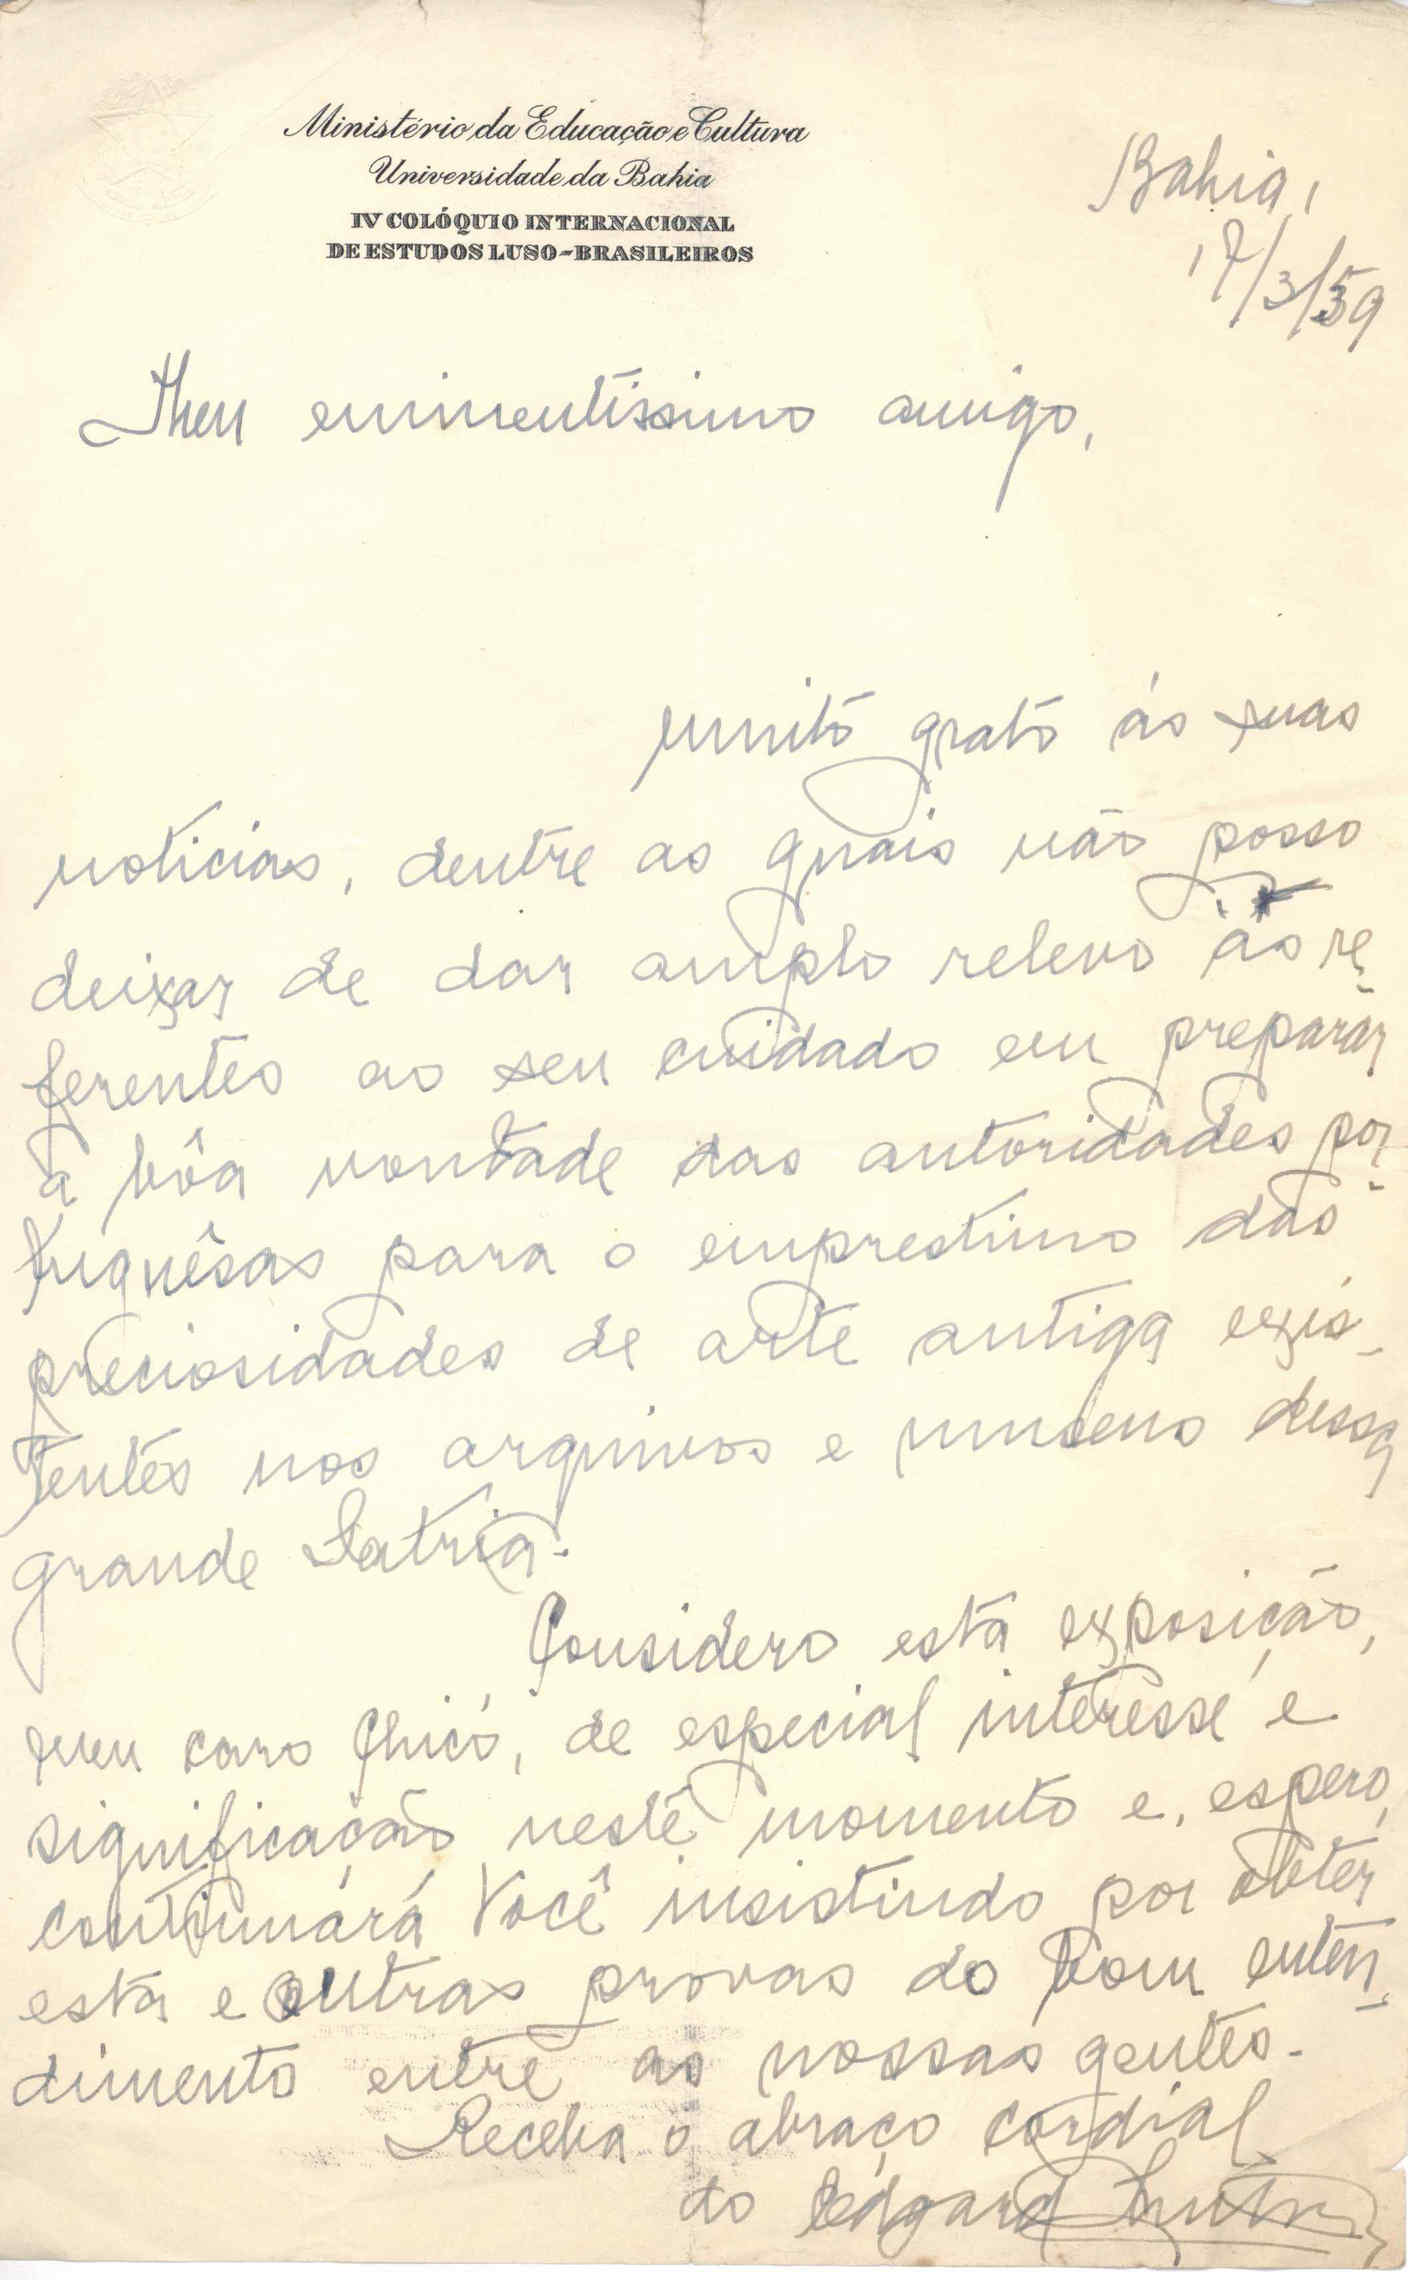 Ministério da Educação e Cultura
Universidade da Bahia
IV COLÓQUIO INTERNACIONAL
DE ESTUDOS LUSO-BRASILEIROS
Bahia,
17/3/59
Meu eminentíssimo amigo,
muito grato ás suas
noticias, dentre as quais não posso
deixar de dar amplo relevo ás re-
ferentes ao seu cuidado em preparar
a bôa vontade das autoridades por-
tuguêsas para o emprestimo das
preciosidades de arte antiga exis-
tentes nos arquivos e museus dessa
grande Patria.
Considero esta exposição,
meu caro Chicó, de especial interesse e
significação neste momento e, espero,
continuará Você insistindo por obter
esta e outras provas do bom enten-
dimento entre as nossas gentes.
Receba o abraço cordial
do Edgard Santos